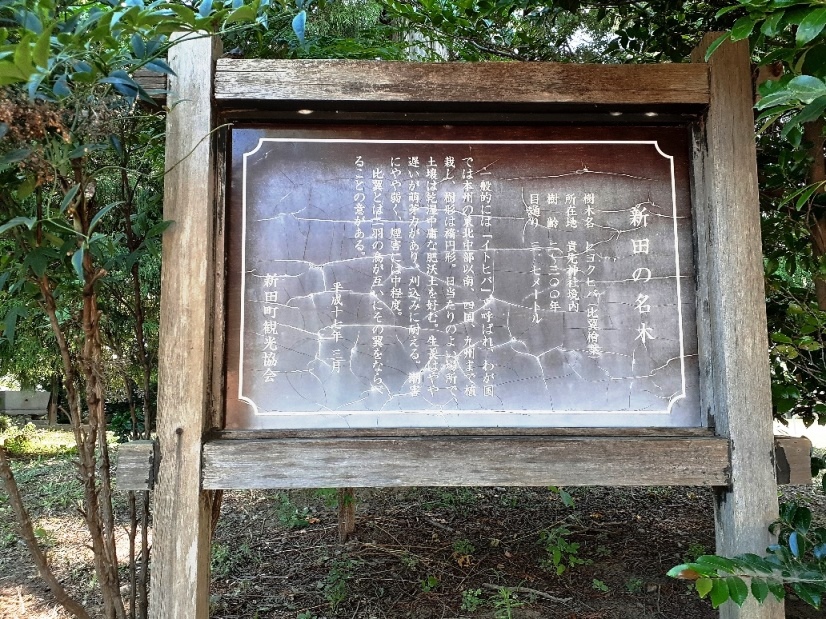 新田の名木
樹木名 ヒヨクヒバ(比翼桧葉)
所在地 貴先神社境内
樹 齢 二〜三〇〇年
目廻り 三.七メートル
一般的には「イトヒバ」と呼ばれ、わが国
では本州の東北中部以南、四国、九州まで植
栽し、樹形は楕円形。日当たりのよい場所で、
土壌は乾湿中庸な肥沃土を好む。生長はやや
遅いが萌芽力があり、刈込みに耐える。潮害
にやや弱く、煙害には中程度。
比翼とは二羽の鳥が互いにその翼をならべ
ることの意がある。
平成十七年 三月
新田町観光協会